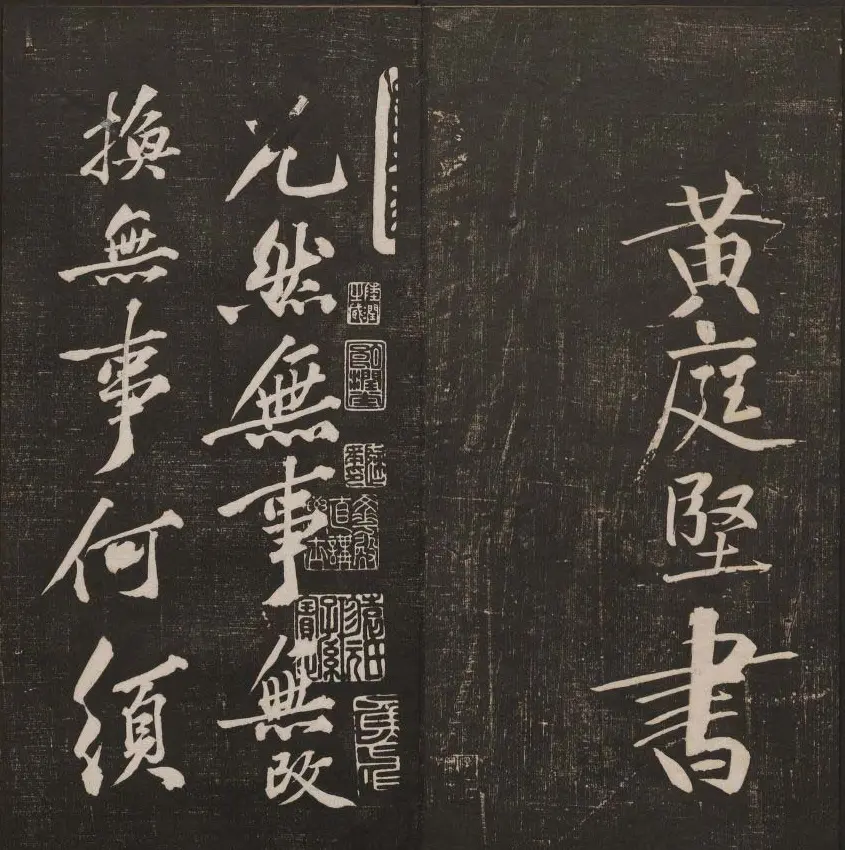 黃庭堅書
兀然無事無改
換無事何須